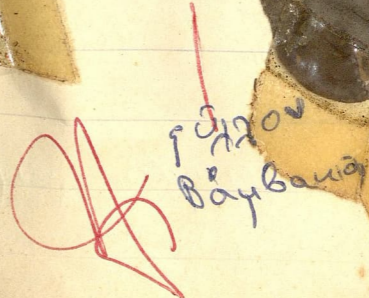 φύλλον
Βάμβακιά